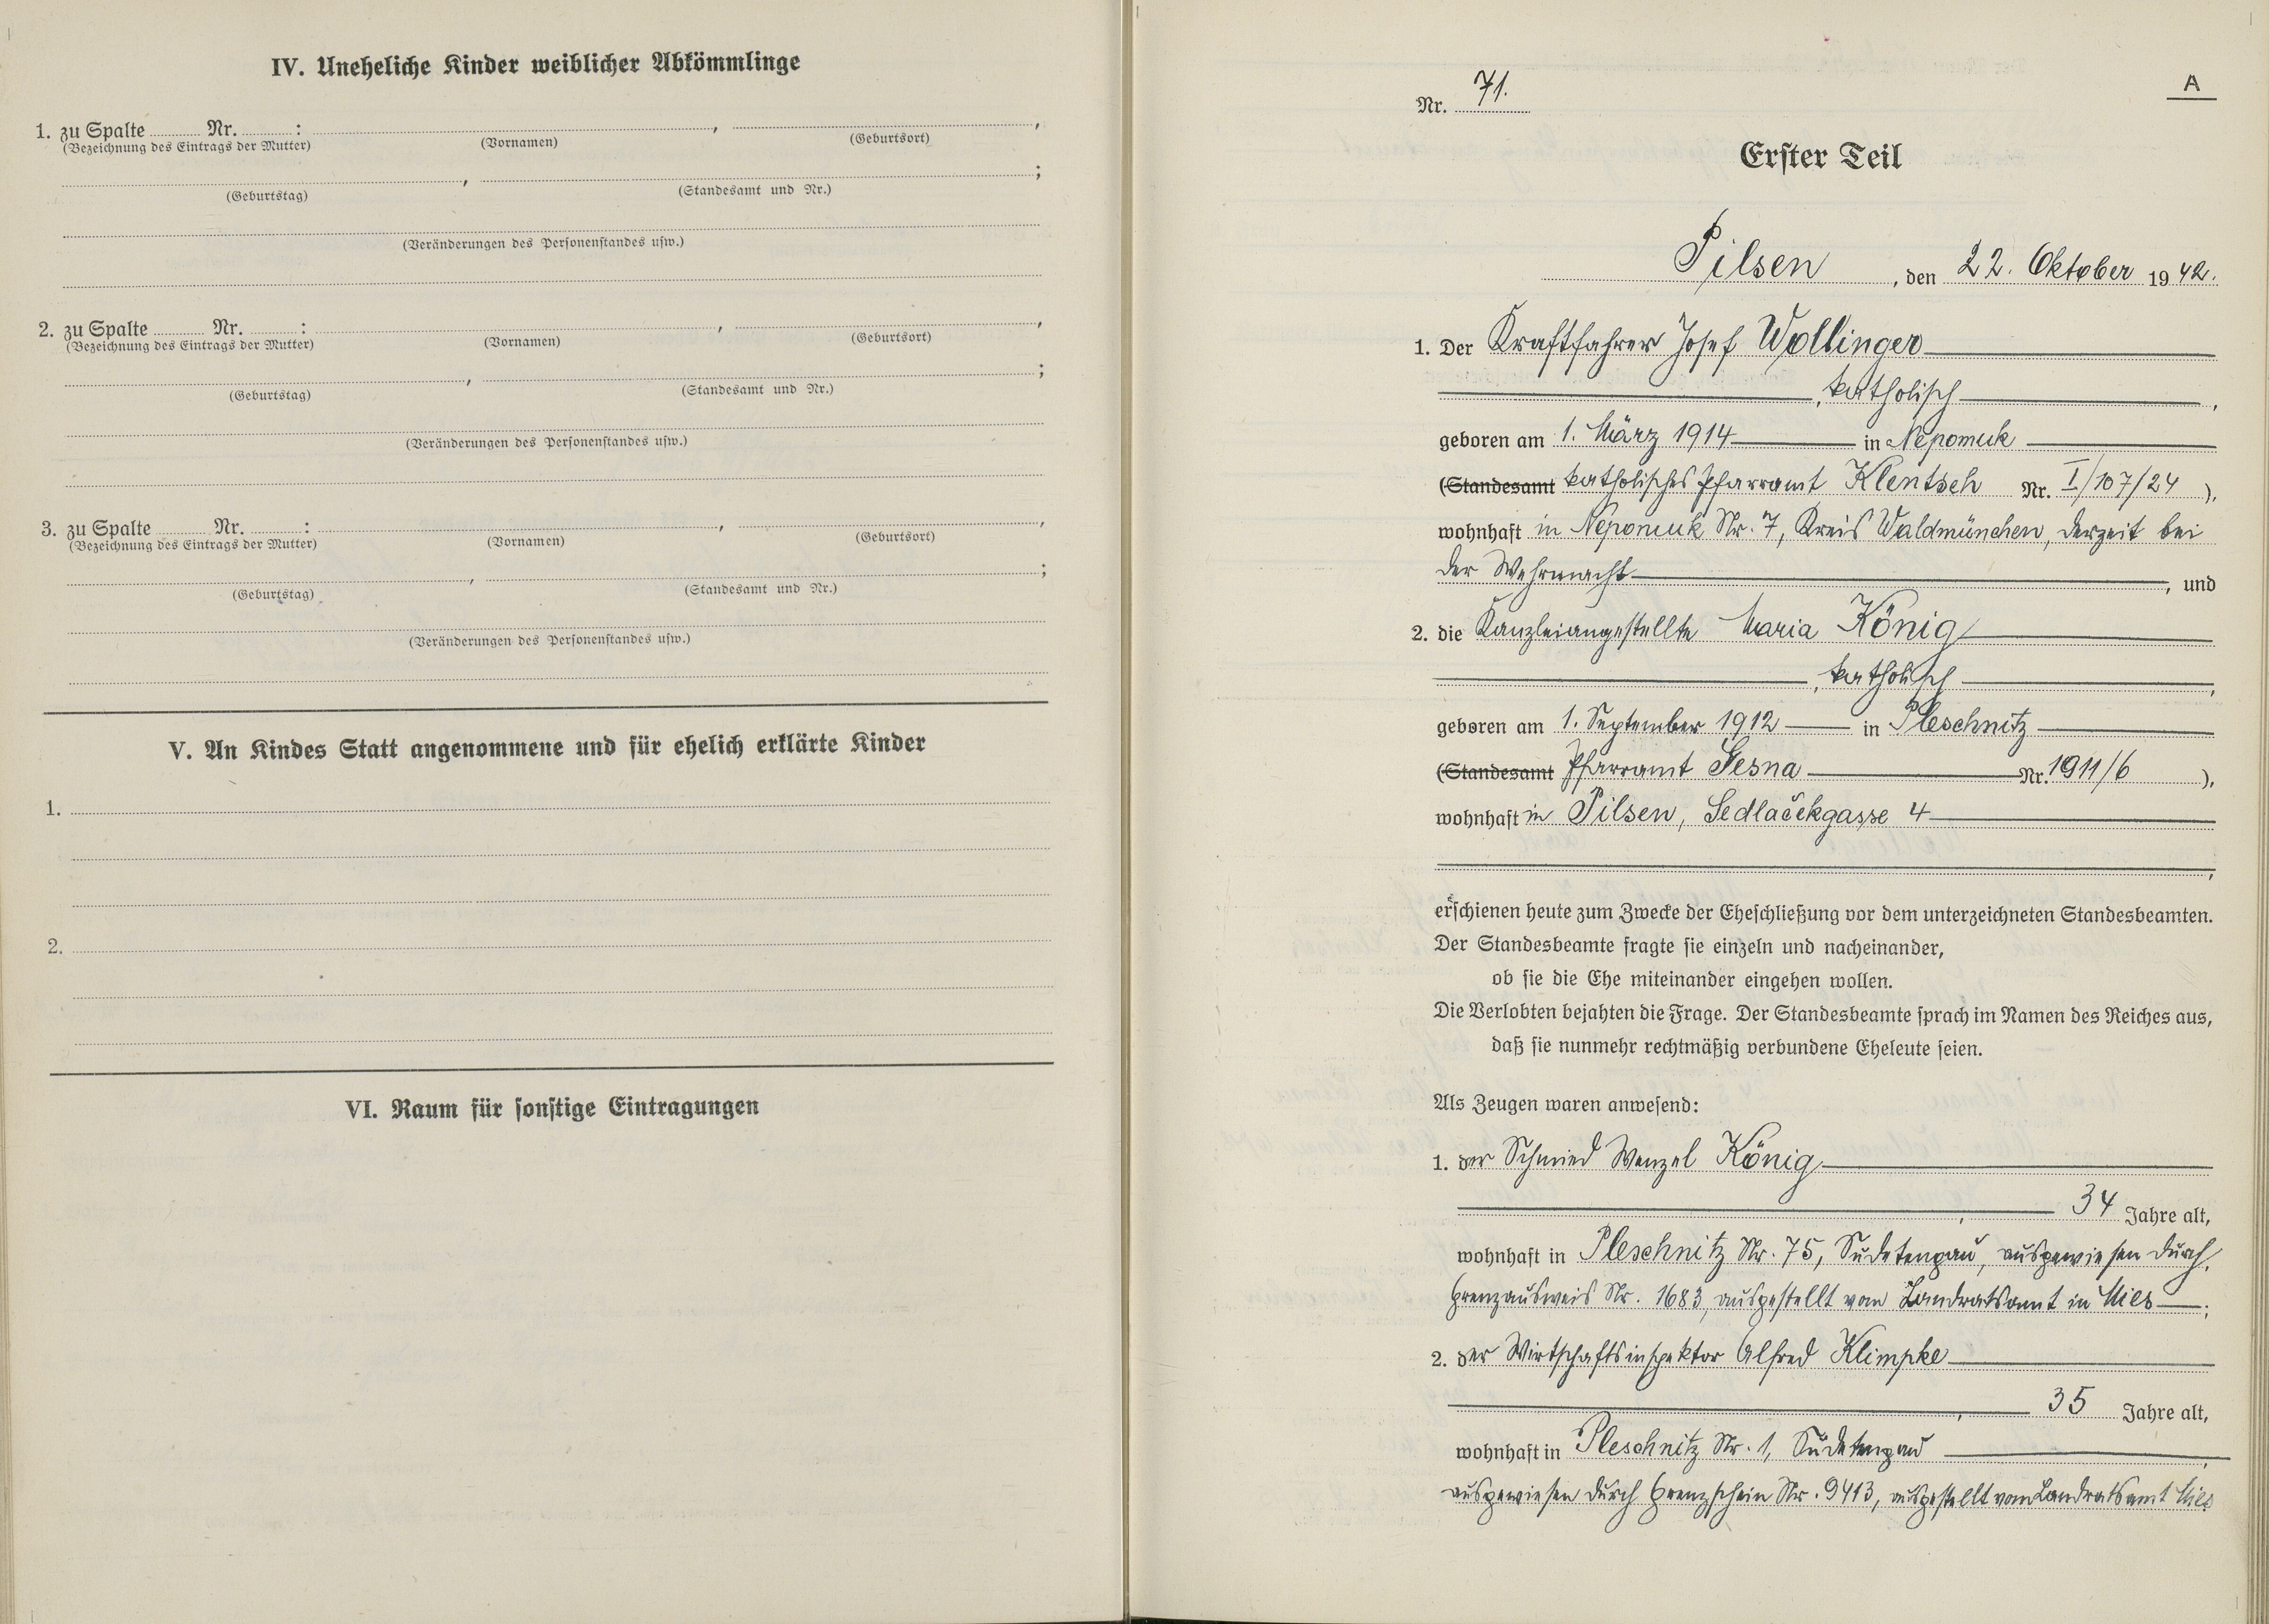 IV. Uneheliche Kinder weiblicher Abkömmlinge
1. zu Spalte Nr. : , ,
(Bezeichnung des Eintrags der Mutter) (Vornamen) (Geburtsort)
, ;
(Geburtstag) (Standesamt und Nr.)
(Veränderungen des Personenstandes usw.)
2. zu Spalte Nr. : , ,
(Bezeichnung des Eintrags der Mutter) (Vornamen) (Geburtsort)
, ;
(Geburtstag) (Standesamt und Nr.)
(Veränderungen des Personenstandes usw.)
3. zu Spalte Nr. : , ,
(Bezeichnung des Eintrags der Mutter) (Vornamen) (Geburtsort)
, ;
(Geburtstag) (Standesamt und Nr.)
(Veränderungen des Personenstandes usw.)
V. An Kindes Statt angenommene und für ehelich erklärte Kinder
1.
2.
VI. Raum für sonstige Eintragungen
A
Nr. 71.
Erster Teil
Pilsen, den 22. Oktober 1942.
1. Der Kraftfahrer Josef Wollinger
, katholisch ,
geboren am 1. März 1914 in Nepomuk
(Standesamt katholisches Pfarramt Klentsch Nr. I/107/24 ),
wohnhaft in Nepomuk Nr. 7, Kreis Waldmünchen, derzeit bei
der Wehrmacht , und
2. die Kanzleiangestellte Maria König
, katholisch ,
geboren am 1. September 1912 in Pleschnitz
(Standesamt Pfarramt Gesna Nr. 1911/6 ),
wohnhaft in Pilsen, Sedlačekgasse 4
,
erschienen heute zum Zwecke der Eheschließung vor dem unterzeichneten Standesbeamten.
Der Standesbeamte fragte sie einzeln und nacheinander,
ob sie die Ehe miteinander eingehen wollen.
Die Verlobten bejahten die Frage. Der Standesbeamte sprach im Namen des Reiches aus,
daß sie nunmehr rechtmäßig verbundene Eheleute seien.
Als Zeugen waren anwesend:
1. der Schmied Wenzel König
, 34 Jahre alt,
wohnhaft in Pleschnitz Nr. 75, Sudetengau, ausgewiesen durch
Grenzausweis Nr. 1683, ausgestellt vom Landratsamt in Mies ;
2. der Wirtschaftsinspektor Alfred Klimpke
, 35 Jahre alt,
wohnhaft in Pleschnitz Nr. 1, Sudetengau ,
ausgewiesen durch Grenzschein Nr. 9413, ausgestellt vom Landratsamt Mies